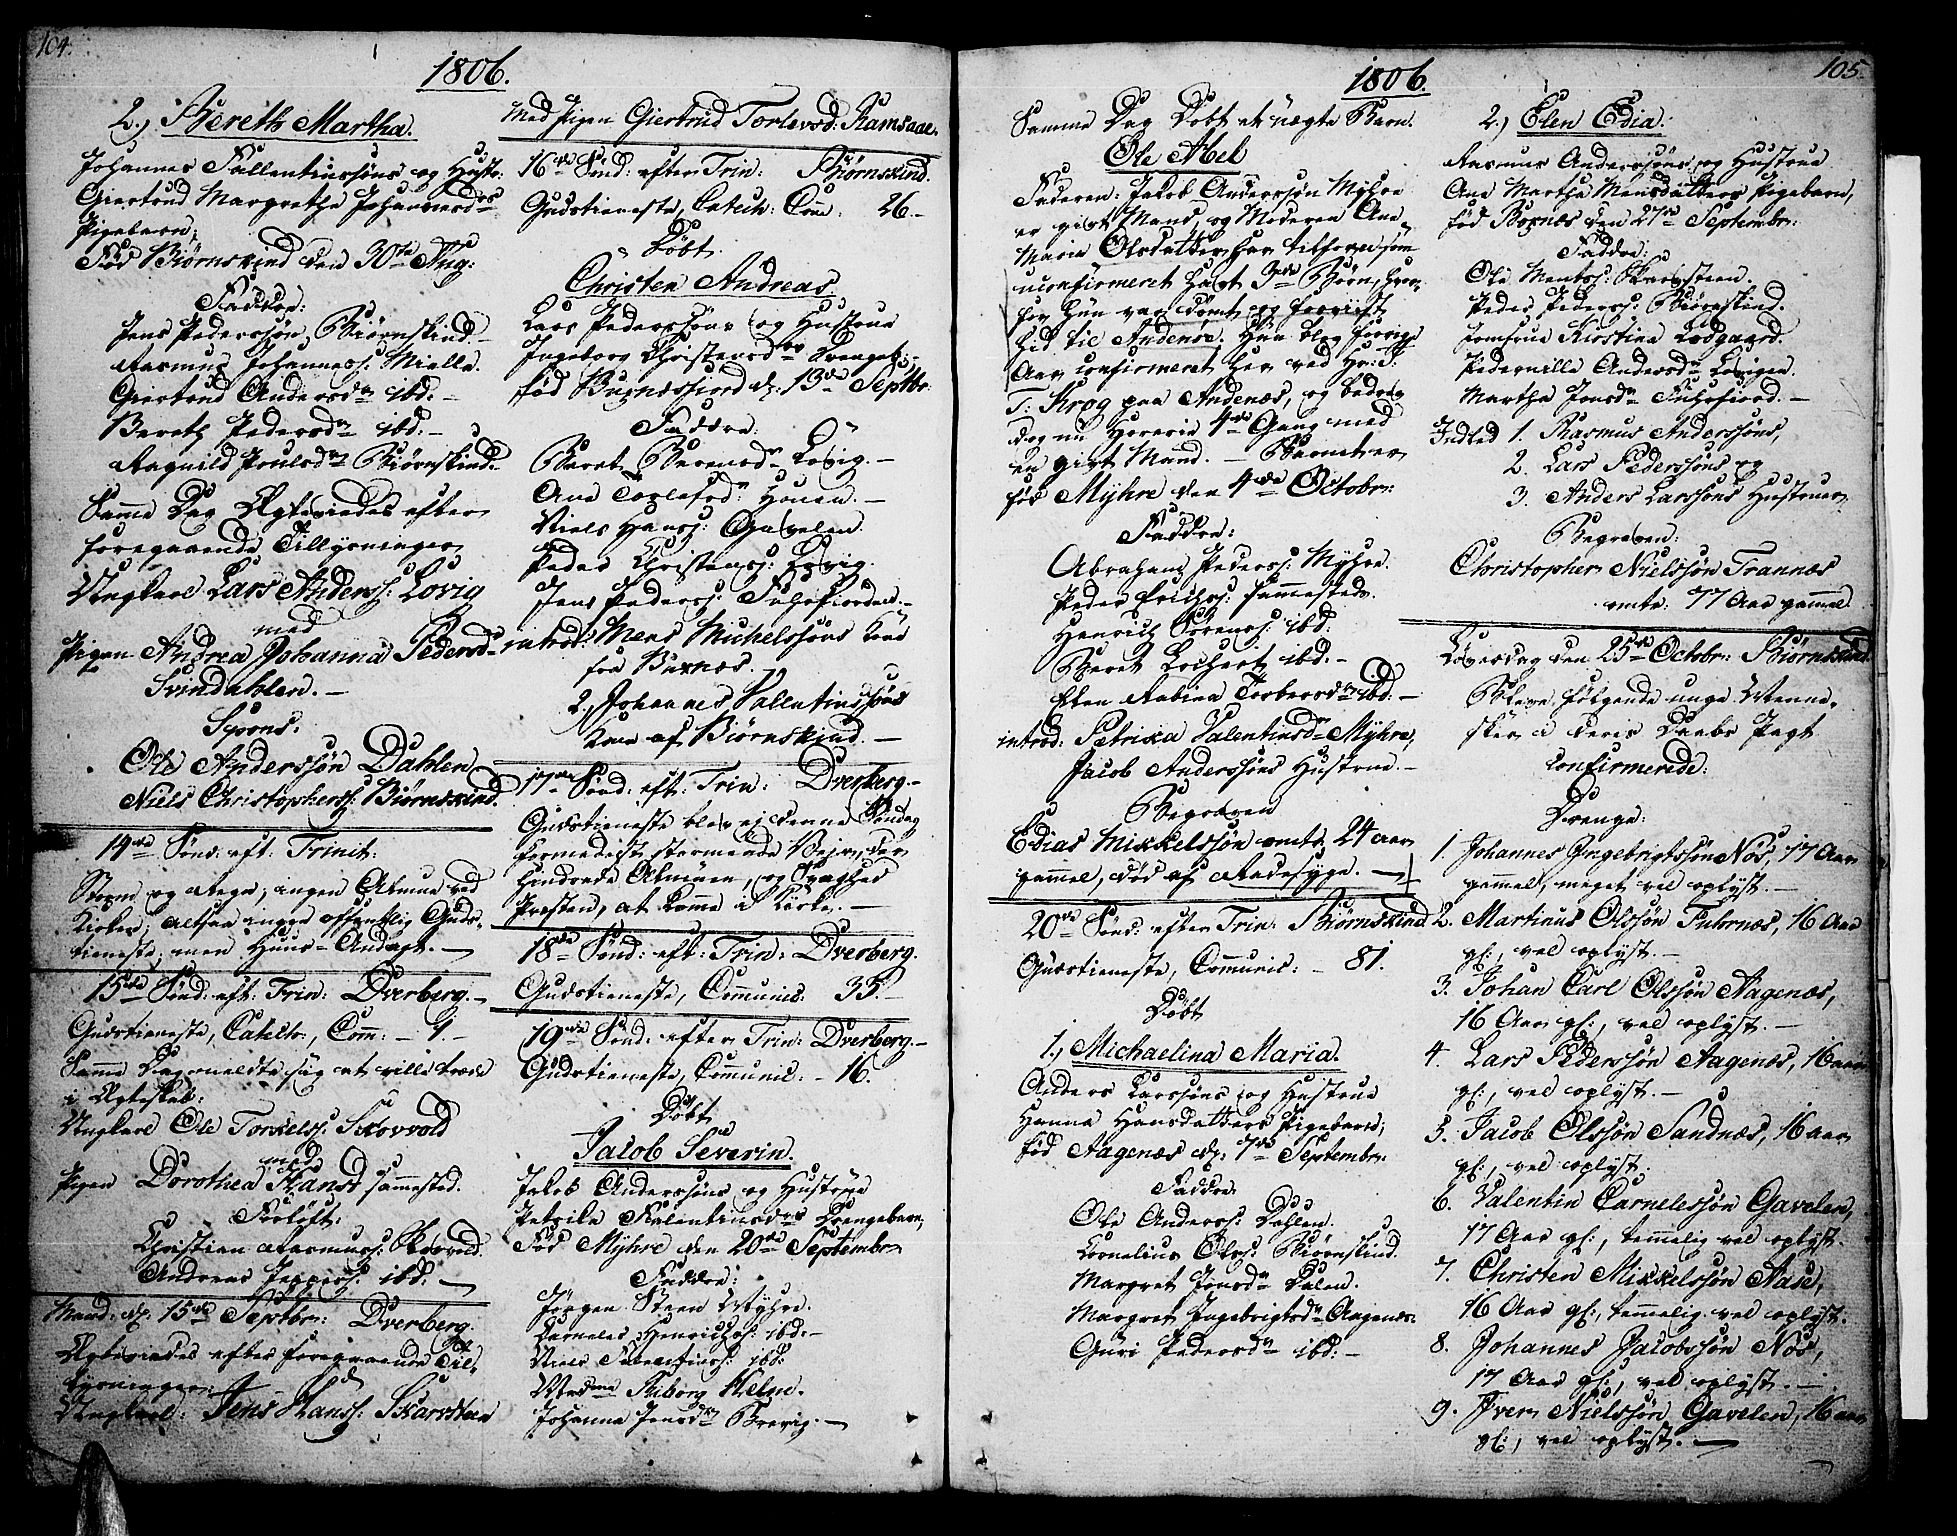 104.
1806.
2.) Bereth Martha.
Johannes Fallentinssøns og Hustr:
Giertrud Margretha Johannesdrs
Pigebarn,
Fød Biørnskind den 30te Aug:
Faddre:
Jens Pederssøn, Biørnskind.
Rasmus Johanness: Mielle.
Giertrud Andersdr ibd. -
Bereth Pedersdr ibd. -
Ragnild Poulsdr Biørnskind.
Samme Dag Ægteviedes efter
foregaaende Tillysninger
Ungkarl Lars Anderss: Lovig
med
Pigen Andrea Johanna Pedersd-
Svindahlen. -
Spons:
Ole Anderssøn Dahlen
Niels Christophers: Biørnskind.
14de Sønd: eft: Trinit:
Storm og Regn, ingen Almue ved
Kirken, altsaa ingen offentlig Guds-
tieneste, men Huus-Andagt. -
15de Sønd: eft: Trin: Dverberg. -
Gudstieneste, Catech:, Com: - 9. -
Samme Dag meldte sig at ville træde
i Ægteskab:
Ungkarl Ole Torkelss: Skovvold
med
Pigen Dorothea Hansd sammested.
Forlöft:
Christian Rasmuss: Skovvold.
Andreas Jeppess: ibd. -
Mand: d: 15de Septbr: Dverberg.
Ægteviedes efter foregaaende Til-
lysninger
Ungkarl: Jens Hanss: Skarsteen
Med Pigen Giertrud Torlevsd: Ramsaae.
16de Sønd: efter Trin: Biørnskind.
Gudstieneste, Catech: Com: 26. -
Døbt
Christen Andreas.
Lars Pederssøns og Hustrue
Ingeborg Christensdrs Drengeb:,
fød Buxnæsfiord d: 13de Septbr.
Faddre:
Beret Berensdr Lovig. -
Ane Torlefsdr Houen. -
Niels Hanss: Gavelen.
Peder Christenss: Lovig.
Jens Pederss: Fuhrfiorden. -
introd: Mens Michelssøns Kone
fra Buxnæs. -
2, Johannes Vallentinssøns
Kone af Biørnskind. -
17de Sønd: eft: Trin: Dverberg. -
Gudstieneste blev ej denne Søndag
formedelst stormende Vejr, der
hindrede Almuen, og Svaghed
Præsten, at komme i Kirke. -
18de Sønd: eft: Trin: Dverberg.
Gudstieneste, Communic: 35. -
19de Sønd: efter Trin: Dverberg. -
Gudstieneste, Communic: - 16.
Døbt
Jacob Severin.
Jakob Anderssøns og Hustrue
Petrike Falentinsdrs Drengebarn,
Fød Myhre den 20de Septembr.
Faddre:
Jørgen Steen Myhre.
Carneles Henrichss: ibd: -
Niels Falentinss: ibd:
Madme Friborg Helme.
Johanna Jensdr Brevig. -
1806.
105.
Samme Dag Døbt et uægte Barn.
Ole Abel
Faderen: Jakob Anderssøn Myhre
er gift Mand, og Moderen Ane
Maria Olsdatter, har tilforn som
uconfirmeret havt 3de Børn, hvor-
for hun var dømt og forviist
hid til Andenøe. Hun blev forrige
Aar confirmeret her ved Hr: P:
T: Krog paa Andenæs, og bedrev
dog nu Horerie 4de Gang med
en gift Mand. - Barnet er
fød Myhre den 4de Octobr:
Faddre:
Abraham Pederss: Myhre.
Peder Erichss: sammesteds.
Henrich Sörenss: ibd.
Beret Lochert ibd. -
Elen Rabina Torbersdr ibd. -
introd: Petrika Valentinsdr Myhre,
Jacob Anderssøns Hustrue. -
Begraven
Edias Mikkelssøn, omtr: 24 aar
gammel, død af Radesyge. -
20de Sønd: efter Trin: Biørnskind
Gudstieneste, Communic: - 81.
Døbt
1.) Michaelina Maria.
Anders Larssøns og Hustrue
Hanna Hansdatters Pigebarn,
fød Aagenæs d: 7de Septembr.
Faddre
Ole Anderss: Dahlen.
Cornelius Olss: Biørnskind.
Margret Jonsdr Dalen.
Margret Ingebrigtsdr Aagenæs.
Guri Pedersdr ibd: -
2.) Elen Edia.
Rasmus Anderssøns og Hustrue
Ane Martha Mensdatters Pigebarn,
fød Buxnæs den 27de Septembr:
Faddre:
Ole Mentss: Skarsteen.
Peder Pederss: Biørnskind.
Jomfrue Kirstina Lodgaard.
Pedernille Andersdr Lovigen.
Martha Jensdr Fuhrfiord. -
Indled 1. Rasmus Anderssøns,
2. Lars Pederssøns og
3. Anders Larssøns Hustruer.
Begraven:
Christopher Nielssøn Trannæs
omtr: 77 Aar gammel.
Løverdag den 25de Octobr: Biørnskind
Bleve følgende unge Menne-
sker i deres Daabs Pagt
Confirmerede:
Drenge:
1. Johannes Ingebrigtssøn Nös, 17 Aar
gammel, meget vel oplyst. -
2. Martinus Olssøn Fuhrnæs, 16 Aar
gl:, vel oplyst. -
3. Johan Carl Olssøn Aagenæs,
16 Aar gl:, vel oplyst. -
4. Lars Pederssøn Aagenæs, 16 aar
gl:, vel oplyst. -
5. Jacob Olssøn Sandnæs, 16 aar
gl:, vel oplyst.
6. Valentin Carnelessøn Gavelen,
17 Aar gl:, temmelig vel oplyst.
7. Christen Mikkelssøn Aase,
16 Aar gl:, temmelig vel oplyst.
8. Johannes Jacobssøn Nös,
17 Aar gl:, vel oplyst. -
9. Iver Nielssøn Gavelen, 16 aar
gl:, vel oplyst. -